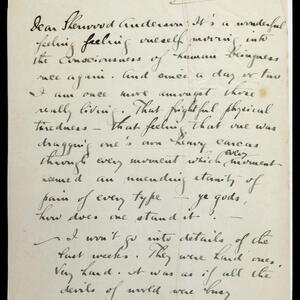 Dear Sherwood Anderson: It's a wonderful
feeling feeling oneself moving into
the consciousness of human beingness
once again. And since a day or two
I am once more amongst those
really living. That frightful physical
tiredness — that feeling that one was
dragging one's own heavy carcas
through every moment which every moment
seemed an unending eternity of
pain of every type — ye gods,
how does one stand it.
— I won't go into details of the
last weeks. They were hard ones.
Very hard. It was as if all the
devils of world were busy